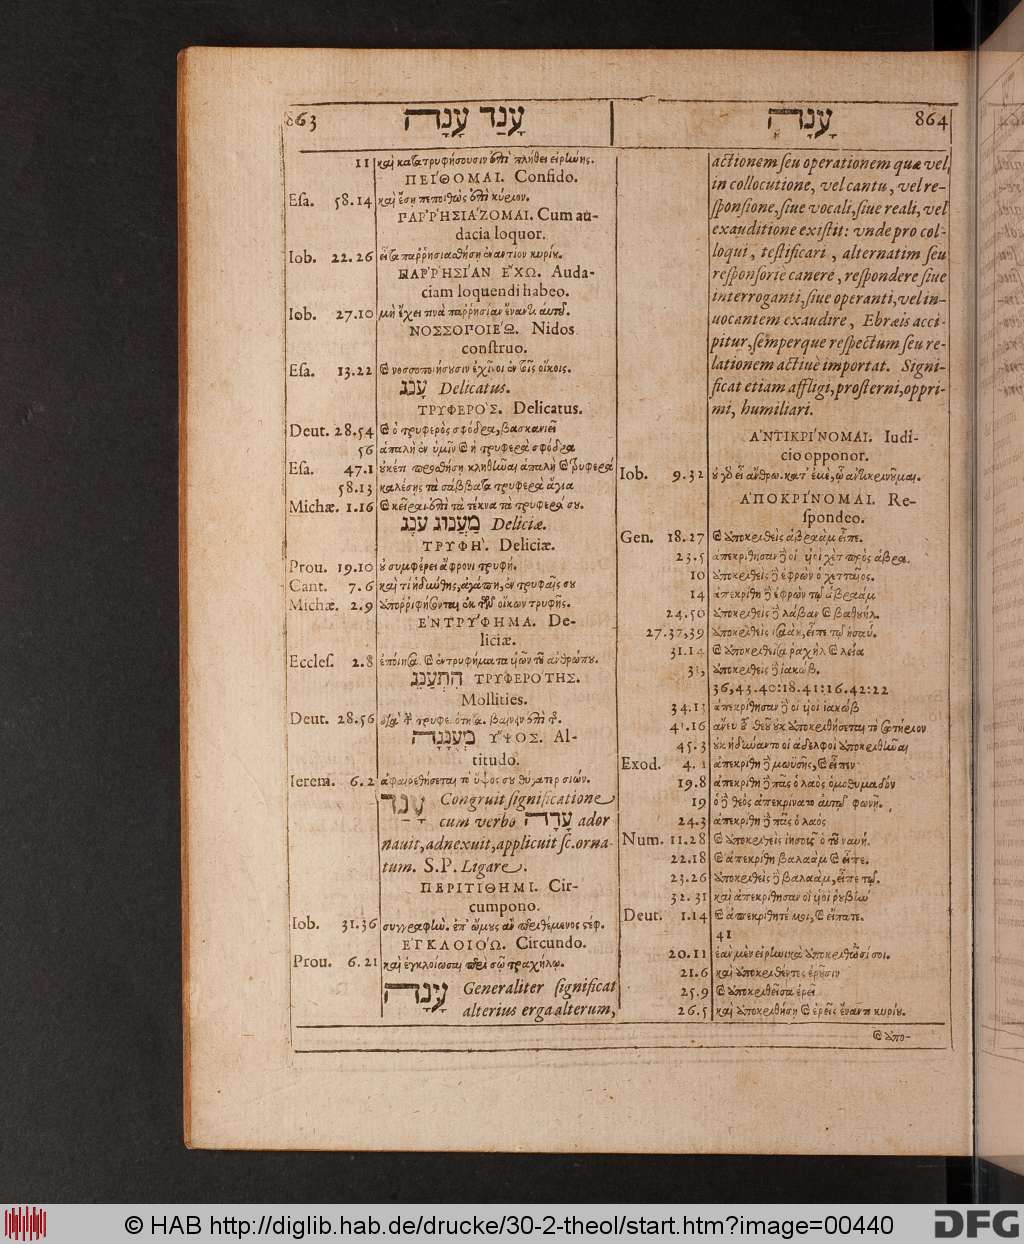 863 עָנַד עָנָה
11 καὶ κατατρυφήσουσιν ἐπὶ πλήθει εἰρήνης.
ΠΕΙΘΟΜΑΙ. Confido.
Esa. 58.14 καὶ ἔσῃ πεποιθὼς ἐπὶ κύριον.
ΠΑΡΡΗΣΙΑΖΟΜΑΙ. Cum au-
dacia loquor.
Iob. 22.26 εἶτα παῤῥησιασθήσῃ ἐναντίον κυρίου.
ΠΑΡΡΗΣΙΑΝ ΕΧΩ. Auda-
ciam loquendi habeo.
Iob. 27.10 μὴ ἔχει τινὰ παῤῥησίαν ἔναντι αὐτοῦ.
ΝΟΣΣΟΠΟΙΕΩ. Nidos
construo.
Esa. 13.22 καὶ νοσσοποιήσουσιν ἐχῖνοι ἐν τοῖς οἴκοις.
עָנֹג Delicatus.
ΤΡΥΦΕΡΟΣ. Delicatus.
Deut. 28.54 καὶ ὁ τρυφερὸς σφόδρα, βασκανιεῖ
56 ἁπαλὴ ἐν ὑμῖν καὶ ἡ τρυφερὰ σφόδρα
Esa. 47.1 οὐκέτι προσθήσῃ κληθῆναι ἁπαλὴ καὶ τρυφερά
58.13 καλέσῃς τὰ σάββατα τρυφερὰ ἅγια
Michæ. 1.16 καὶ κεῖραι ἐπὶ τὰ τέκνα τὰ τρυφερά σου.
מַעֲנוּג עֹנֶג Deliciæ.
ΤΡΥΦΗ. Deliciæ.
Prou. 19.10 οὐ συμφέρει ἄφρονι τρυφή.
Cant. 7.6 καὶ τί ἡδύνθης, ἀγάπη, ἐν τρυφαῖς σου
Michæ. 2.9 ἀποῤῥιφήσονται ἐκ τῶν οἴκων τρυφῆς.
ΕΝΤΡΥΦΗΜΑ. De-
liciæ.
Eccles. 2.8 ἐποίησα καὶ ἐντρυφήματα υἱῶν τοῦ ἀνθρώπου.
הִתְעַנֵּג ΤΡΥΦΕΡΟΤΗΣ.
Mollities.
Deut. 28.56
מְעֻנָּגָה ΥΨΟΣ. Al-
titudo.
Ierem. 6.2 ἀφαιρεθήσεται τὸ ὕψος σου θύγατερ σιών.
עָנַד Congruit significatione
cum verbo עָדָה ador
nauit, adnexuit, applicuit sc. orna-
tum. S.P. Ligare.
ΠΕΡΙΤΙΘΗΜΙ. Cir-
cumpono.
Iob. 31.36 συγγραφὴν. ἐπ' ὤμοις ἂν περιθέμενος στέφ.
ΕΓΚΛΟΙΟΩ. Circundo.
Prou. 6.21 καὶ ἐγκλοίωσαι περὶ σῷ τραχήλῳ.
עָנָה Generaliter significat
alterius erga alterum,
עָנָה 864
actionem seu operationem quæ vel
in collocutione, vel cantu, vel re-
sponsione, siue vocali, siue reali, vel
exauditione existit: vnde pro col-
loqui, testificari, alternatim seu
responsorie canere, respondere siue
interroganti, siue operanti, vel in-
uocantem exaudire, Ebræis acci-
pitur, semperque respectum seu re-
lationem actiuè importat. Signi-
ficat etiam affligi, prosterni, oppri-
mi, humiliari.
ΑΝΤΙΚΡΙΝΟΜΑΙ. Iudi-
cio opponor.
Iob. 9.32 οὐ γὰρ εἶ ἄνθρω. κατ' ἐμὲ, ᾧ ἀντικρινοῦμαι.
ΑΠΟΚΡΙΝΟΜΑΙ. Re-
spondeo.
Gen. 18.27 καὶ ἀποκριθεὶς ἀβραὰμ εἶπε.
23.5 ἀπεκρίθησαν δὲ οἱ υἱοὶ χὲτ πρὸς ἁβρα.
10 ἀποκριθεὶς δὲ ἐφρὼν ὁ χετταῖος.
14 ἀπεκρίθη δὲ ἐφρὼν τῷ ἁβραὰμ
24.50 ἀποκριθεὶς δὲ λάβαν καὶ βαθουήλ.
27.37,39 ἀποκριθεὶς ἰσαὰκ, εἶπε τῷ ἠσαῦ.
31.14 καὶ ἀποκριθεῖσα ῥαχὴλ καὶ λεία
31, ἀποκριθεὶς δὲ ἰακώβ.
36,43.40:18.41:16.42:22
34.13 ἀπεκρίθησαν δὲ οἱ υἱοὶ ἰακὼβ
41.16 ἄνευ τοῦ θεοῦ οὐκ ἀποκριθήσεται τὸ σωτήριον
45.3 οὐκ ἠδύναντο οἱ ἀδελφοὶ ἀποκριθῆναι
Exod. 4.1 ἀπεκρίθη δὲ μωϋσῆς, καὶ εἶπεν
19.8 ἀπεκρίθη δὲ πᾶς ὁ λαὸς ὁμοθυμαδὸν
19 ὁ δὲ θεὸς ἀπεκρίνατο αὐτῷ φωνῇ.
24.3 ἀπεκρίθη δὲ πᾶς ὁ λαὸς
Num. 11.28 καὶ ἀποκριθεὶς ἰησοῦς ὁ τοῦ ναυή.
22.18 καὶ ἀπεκρίθη βαλαὰμ καὶ εἶπε.
23.26 ἀποκριθεὶς δὲ βαλαὰμ, εἶπε τῷ.
32.31 καὶ ἀπεκρίθησαν οἱ υἱοὶ ῥουβὴν
Deut. 1.14 καὶ ἀπεκρίθητέ μοι, καὶ εἴπατε.
41
20.11 ἐὰν μὲν εἰρηνικὰ ἀποκριθῶσί σοι.
21.6 καὶ ἀποκριθέντες ἐροῦσιν
25.9 καὶ ἀποκριθεῖσα ἐρεῖ
26.5 καὶ ἀποκριθήσῃ καὶ ἐρεῖς ἔναντι κυρίου.
καὶ ἀπο-
© HAB http://diglib.hab.de/drucke/30-2-theol/start.htm?image=00440
DFG